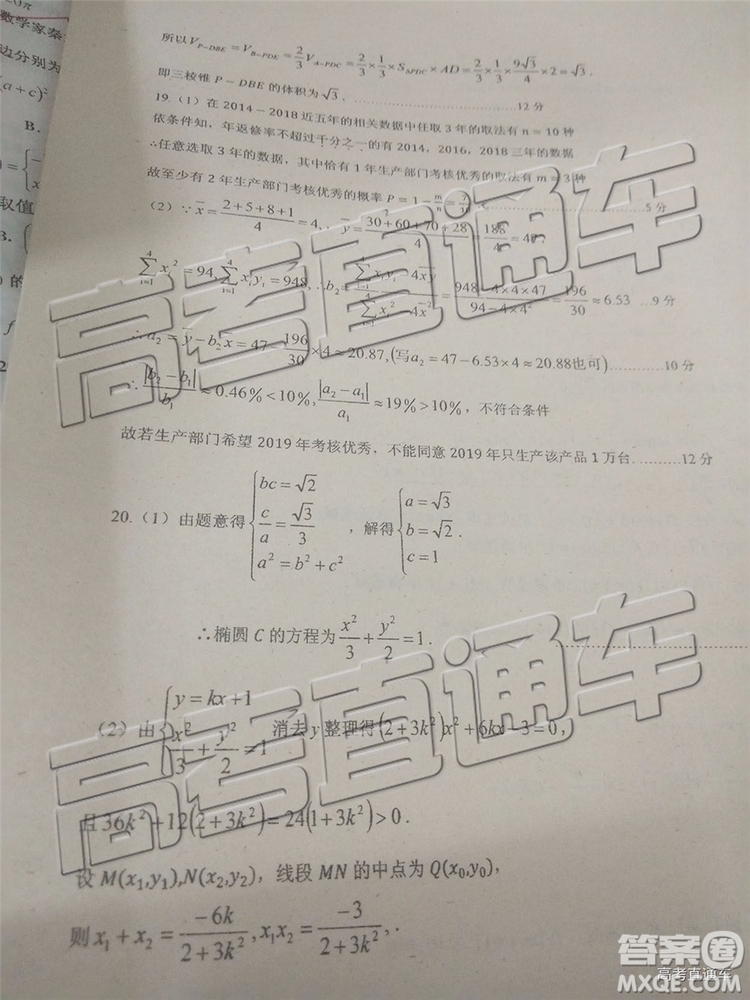 20π
数学家秦
边分别为
(a+c)²
B.
取值
B.
的
f
所以V_{P-DBE}=V_{B-PDE}=\frac{2}{3}V_{A-PDC}=\frac{2}{3}×\frac{1}{3}×S_{△PDC}×AD=\frac{2}{3}×\frac{1}{3}×\frac{9√3}{4}×2=√3.
即三棱锥P-DBE的体积为√3. ……12分
19.(1)在2014-2018近五年的相关数据中任取3年的取法有n=10种
依条件知，年返修率不超过千分之一的有2014，2016，2018三年的数据
∴任意选取3年的数据，其中恰有1年生产部门考核优秀的取法有m=3种
故至少有2年生产部门考核优秀的概率P=1-\frac{m}{n}=\frac{7}{10} ……5分
(2)∵\overline{x}=\frac{2+5+8+1}{4}=4,\overline{y}=\frac{30+60+70+28}{4}=\frac{188}{4}=47
\sum_{i=1}^{4}x_i²=94,\sum_{i=1}^{4}x_iy_i=948,∴b₂=\frac{\sum_{i=1}^{4}x_iy_i-4\overline{x}\overline{y}}{\sum_{i=1}^{4}x_i²-4\overline{x}²}=\frac{948-4×4×47}{94-4×4²}=\frac{196}{30}≈6.53 …9分
∴a₂=\overline{y}-b₂\overline{x}=47-\frac{196}{30}×4≈20.87,(写a₂=47-6.53×4≈20.88也可)……10分
∵\frac{|b₂-b₁|}{b₁}≈0.46%<10%,\frac{|a₂-a₁|}{a₁}≈19%>10%，不符合条件
故若生产部门希望2019年考核优秀，不能同意2019年只生产该产品1万台.……12分
20.(1)由题意得{bc=√2 \frac{c}{a}=\frac{√3}{3} a²=b²+c²，解得{a=√3 b=√2 c=1.
∴椭圆C的方程为\frac{x²}{3}+\frac{y²}{2}=1.
(2)由{y=kx+1 \frac{x²}{3}+\frac{y²}{2}=1 消去y整理得(2+3k²)x²+6kx-3=0,
且36k²+12(2+3k²)=24(1+3k²)>0.
设M(x₁,y₁),N(x₂,y₂)，线段MN的中点为Q(x₀,y₀),
则x₁+x₂=\frac{-6k}{2+3k²},x₁x₂=\frac{-3}{2+3k²},.
高考直通车
高考直通车
答案圈
高考直通车
MXQE.COM